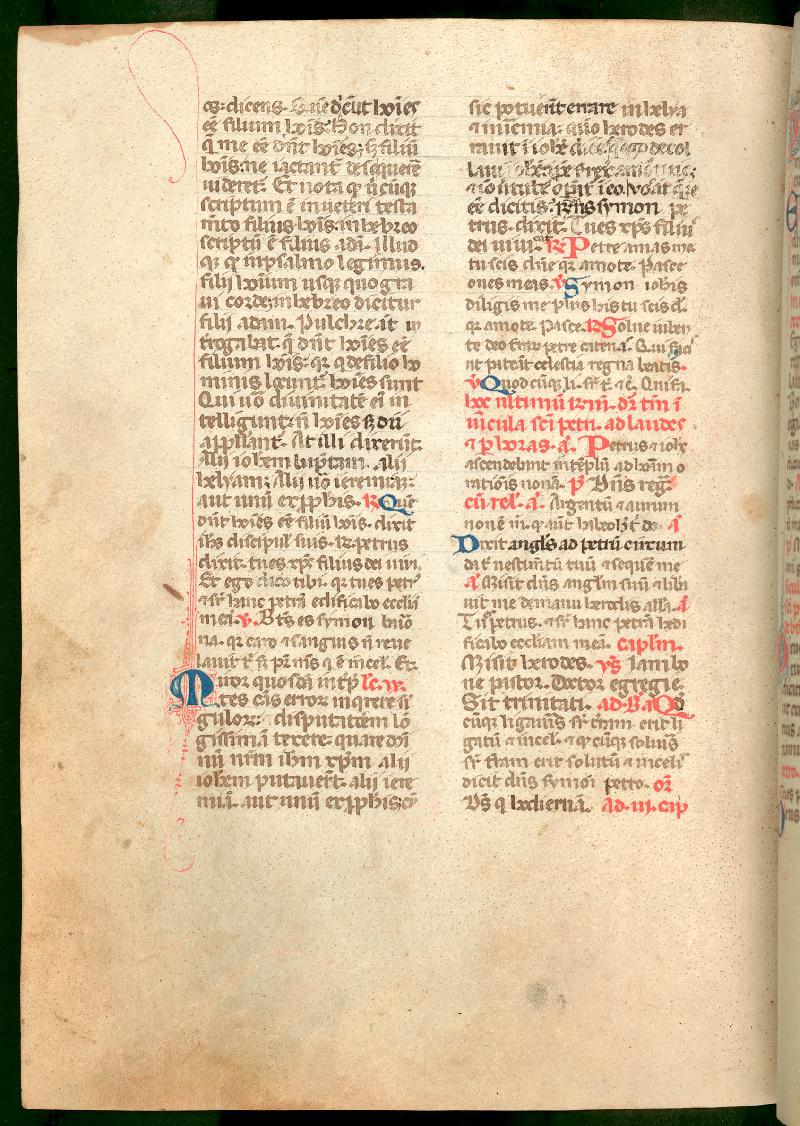 os: dicens. Quē dicūt hoīes
eē filium hoīs. Non dixit
q̄ me eē dn̄t hoīes; s; filiū
hoīs. ne iactant̄ de se q̄rere
uideret̄. Et nota qꝫ ūcūqꝫ
scriptum ē in ueteri testa
mēto filius hoīs. in hebreo
scriptū ē filius adā. Illud
qꝫ qꝫ in psalmo legimus.
filij hoīum usqꝫ quo gra
ui corde; in hebreo dicitur
filij adam. Pulchre āt in
trogabat. q̄ dn̄t hoīes eē
filium hoīs: qꝛ q̄ de filio ho
minis locunt̄. hoīes sunt
Qui uō diuinitatē ei in
telligunt; n̄ hoīes sꝫ dii
appllant̄. At illi dixerūt.
Alij iohem baptam. alij
helyam; Alij uō ieremiā;
aut unū ex ꝓphis. ℞ Quē
dn̄t hoīes eē filiū hoīs. dixit
ihs discipul̓ suis. Rn̄. petrus
dixit. tu es xp̄s filius dei uiui.
Et ego dico tibi. qꝛ tu es petr̓
⁊ sr̄ hanc petrā edificabo eccliā
meā. ℣. Bt̄s es symon bario
na. qꝛ caro ⁊ sanguis n̄ reue
lauit t̄ sꝫ pr̄ ms̄ q̄ ē in cel. Et.
Miror quosdā int̓p̄ lc̄. ix.
tes cās error̄ inqrere si
gulor̄: ⁊ disputatōem lō
gissimā texere. quare dn̄i
nū nr̄m ihm xp̄m alij
iohem putauer̄t. alij iere
miā. aut unū ex ꝓphis: cū
sic potuerīt errare in helya
⁊ in ieremia. quō herodes er
rauit ī iohē dicēs. quē ego decol
laui iohēm
⁊ uō
eē dicitis? Rn̄ns symon pe
trus. dixit. Tu es xp̄s filiꝰ
dei uiui. ℞ Petre amas me
tu scis dn̄e qꝛ amo te. Pasce
oues meas. ℣ Symon iohis
diligis me plus his tu scis d̄.
qꝛ amo te. Pasce. ℞ Solue iuben
te deo terrar̄ petre catenas. Qui faci̓
ut pateāt celestia regna beatis.
℣ Quodcūqꝫ li. sr̄ t̄. ⁊ c̄. Qui fa.
hoc ultimū ℞m. dr̄ tm̄ ī
uincula scī petri. ad laudes
⁊ ꝑ horas. a̅. Petrus ⁊ iohs
ascendebant in tēplū ad horam o
rationis nonā. p̄ Dn̄s reg̅.
cū rel. a̅. Argentū ⁊ aurum
non ē m̄. qꝫ aūt habeo h̄ t̄ do. a̅
Dixit angls̄ ad petrū circum
da t̄ uestimētū tuū ⁊ sequere me
a̅ Misit dn̄s anglm̄ suū ⁊ libe
uit me de manu herodis alla. a̅
Tu es petrus. ⁊ sr̄ hanc petrā hedi
ficabo eccliam meā. caplm̄.
Misit herodes. ys̄ Iam bo
ne pastor. Doctor egregie.
Sit trinitati. ad Ba Qd̓
cūqꝫ ligauis sr̄ tr̄am. erit li
gatū ⁊ in cel. ⁊ qꝫ cūqꝫ soluis
sr̄ tr̄am erit solutū ⁊ in celis
dicit dn̄s symōi petro. or̄
Ds̄ q̄ hodiernā. ad. iii. cap